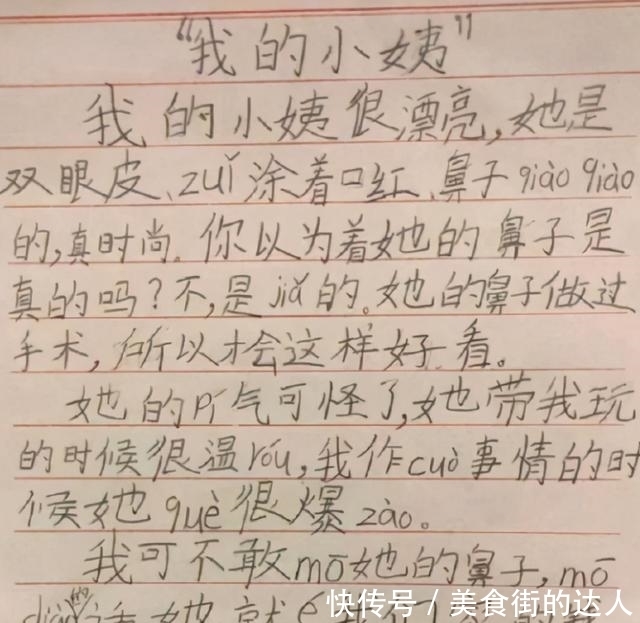 “我的小姨”
我的小姨很漂亮,她是
双眼皮、zuǐ涂着口红、鼻子qiào qiào
的,真时尚。你以为着她的鼻子是
真的吗?不,是jiǎ的。她的鼻子做过
手术,所以才会这样好看。
她的pí气可怪了,她带我玩
的时候很温róu,我作cuò事情的时
候她què很爆zào。
我可不敢mō她的鼻子,mō
她就
快传号 / 美食街的达人